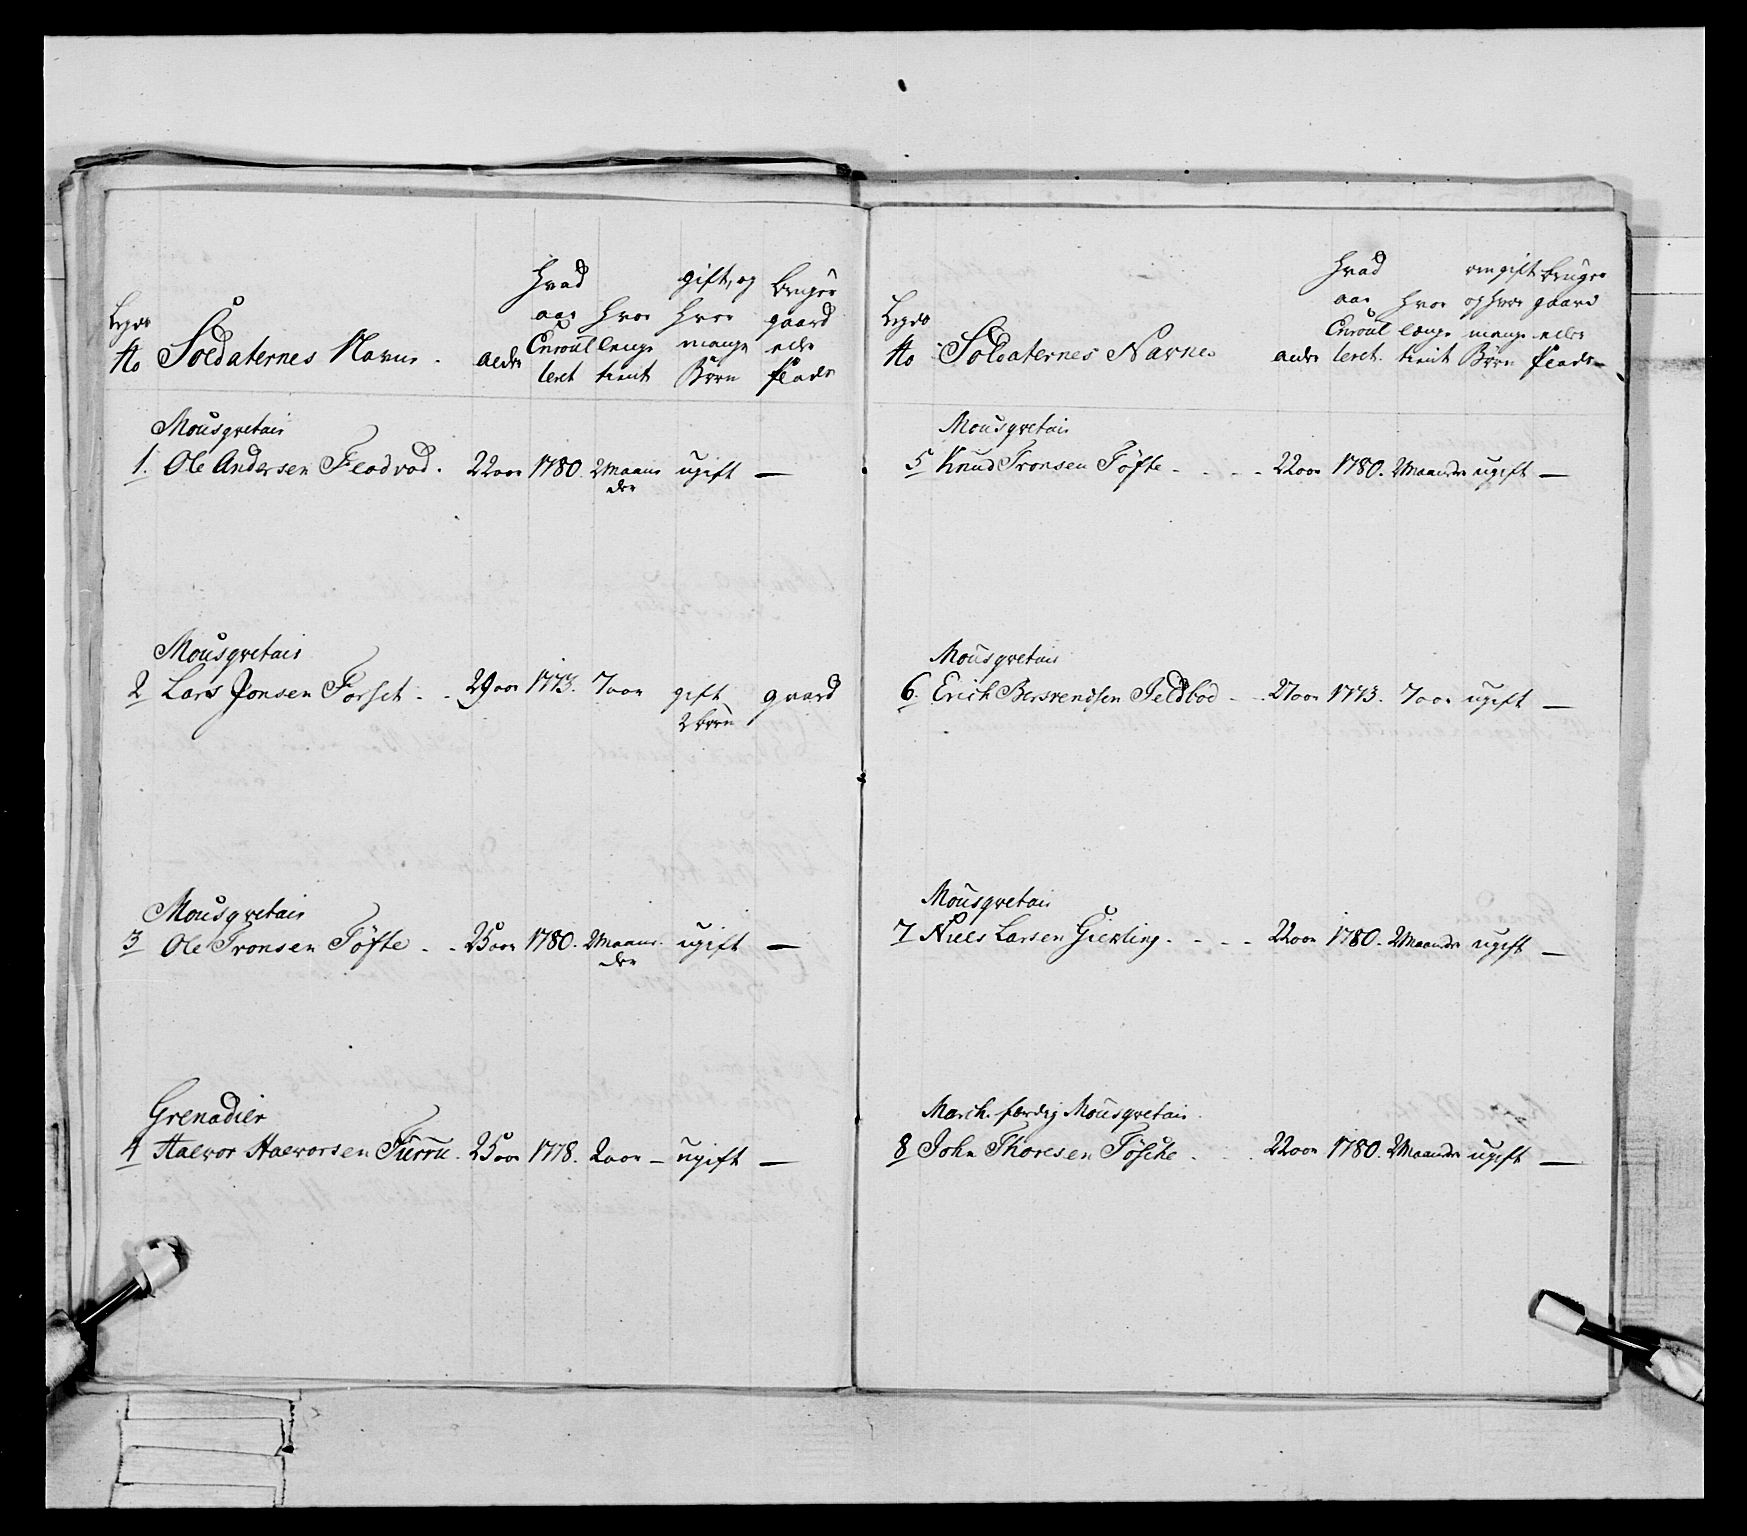 Legds No
Soldaternes Navne.
alder
hvad aar Enroulleret
hvor længe tient
gift, og hvor mange Børn
bruger gaard eller plads
Mousqvetair
1. Ole Andersen Flodvod. 22 aar 1780. 2 Maaneder ugift —
Mousqvetair
2 Lars Jonsen Forset. . 29 aar 1773. 7 aar gift 2 børn gaard
Mousqvetair
3 Ole Tronsen Töfte. . 25 aar 1780. 2 Maaneder ugift —
Grenadier
4 Halvor Halvorsen Furru. 25 aar 1778. 2 aar — ugift —
Legds No
Soldaternes Navne
alder
hvad aar Enroulleret.
hvor længe tient
om gift og hvor mange Børn
bruger gaard eller plads
Mousqvetair
5 Knud Tronsen Töfte 22 aar 1780. 2 Maander ugift —
Mousqvetair
6. Erich Bersvendsen Jeldbod 27 aar 1773. 7 aar ugift —
Mousqvetair
7 Niels Larsen Gierling. 22 aar 1780. 2 Maander ugift —
March. færdig Mousqvetair.
8 John Thoresen Fösche 22 aar 1780. 2 Maander ugift —